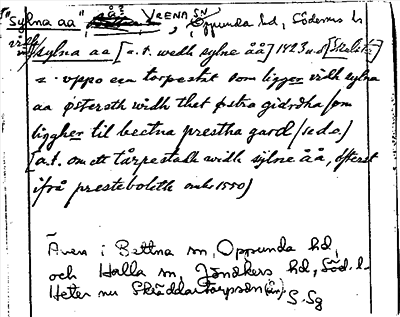 "Sylna aa" åå VRENA SN, Oppunda hd, Söderm. l.
widh sylna aa [a.t. wedh sylne åå] 1423 [Skokl.]
= vppo een torpestat som ligger vidh sylna
aa østeroth widh thet østra gidrdha/om
liggher til bectna prestha gard/(s.d.o.)
[a.t. om ett tårpestadh widh sylne åå, østerst
ifrå presteboleth 1550)
Även i Bettna sn, Oppunda hd,
och Halla sn, Jönåkers hd, Söd. l.
Heter nu Skräddartorpsån S. Sg